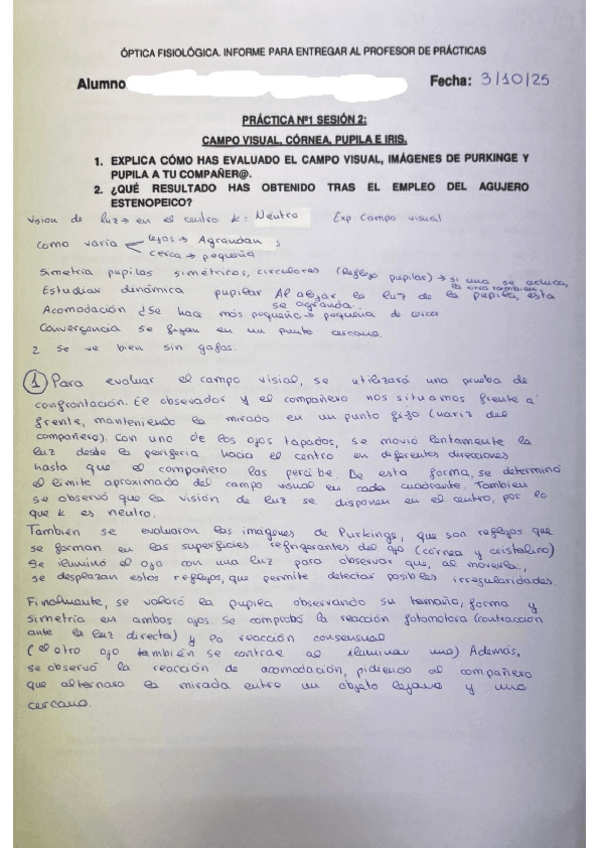 ÓPTICA FISIOLÓGICA. INFORME PARA ENTREGAR AL PROFESOR DE PRÁCTICAS
Alumno Fecha: 3/10/25
PRÁCTICA Nº1 SESIÓN 2:
CAMPO VISUAL, CÓRNEA, PUPILA E IRIS.
1. EXPLICA CÓMO HAS EVALUADO EL CAMPO VISUAL, IMÁGENES DE PURKINGE Y
PUPILA A TU COMPAÑER@.
2. ¿QUÉ RESULTADO HAS OBTENIDO TRAS EL EMPLEO DEL AGUJERO
ESTENOPEICO?
Vision de luz → en el centro K: Neutro Exp. Campo visual
como varia lejos → Agrandan
cerca → pequeña
Simetría pupilas simétricos, circulares (Reflejo pupilar) → si una se
la otra también
Estudiar dinámica pupilar Al alejar la luz de la pupila, esta
se agranda.
Acomodación ¿Se hace más pequeña → pequeña de cerca
Convergencia se fijan en un punto cercano.
2 Se ve bien sin gafas.
1 Para evaluar el campo visial, se utilizará una prueba de
confrontación. El observador y el compañero nos situamos frente a
frente, manteniendo la mirada en un punto fijo (nariz del
compañero). Con uno de los ojos tapados, se movió lentamente la
luz desde la periferia hacia el centro en diferentes direcciones
hasta que el compañero las percibe. De esta forma, se determinó
el límite aproximado del campo visual en cada cuadrante. Tambien
se observó que la visión de luz se disponen en el centro, por lo
que K es neutro.
También se evaluaron las imágenes de Purkinge, que son reflejos que
se forman en las superficies refrigerantes del ojo (córnea y cristalino)
Se iluminó el ojo con una luz para observar que, al moverla,
se desplazan estos reflejos, que permite detectar posibles irregularidades.
Finalmente, se valoró la pupila observando su tamaño, forma y
simetría en ambos ojos. Se comprobó la reacción fotomotora (contracción
ante la luz directa) y la reacción consensual
(el otro ojo también se contrae al iluminar uno) Además,
se observó la reacción de acomodación, pidiendo al compañero
que alternara la mirada entre un objeto lejano y uno
cercano.